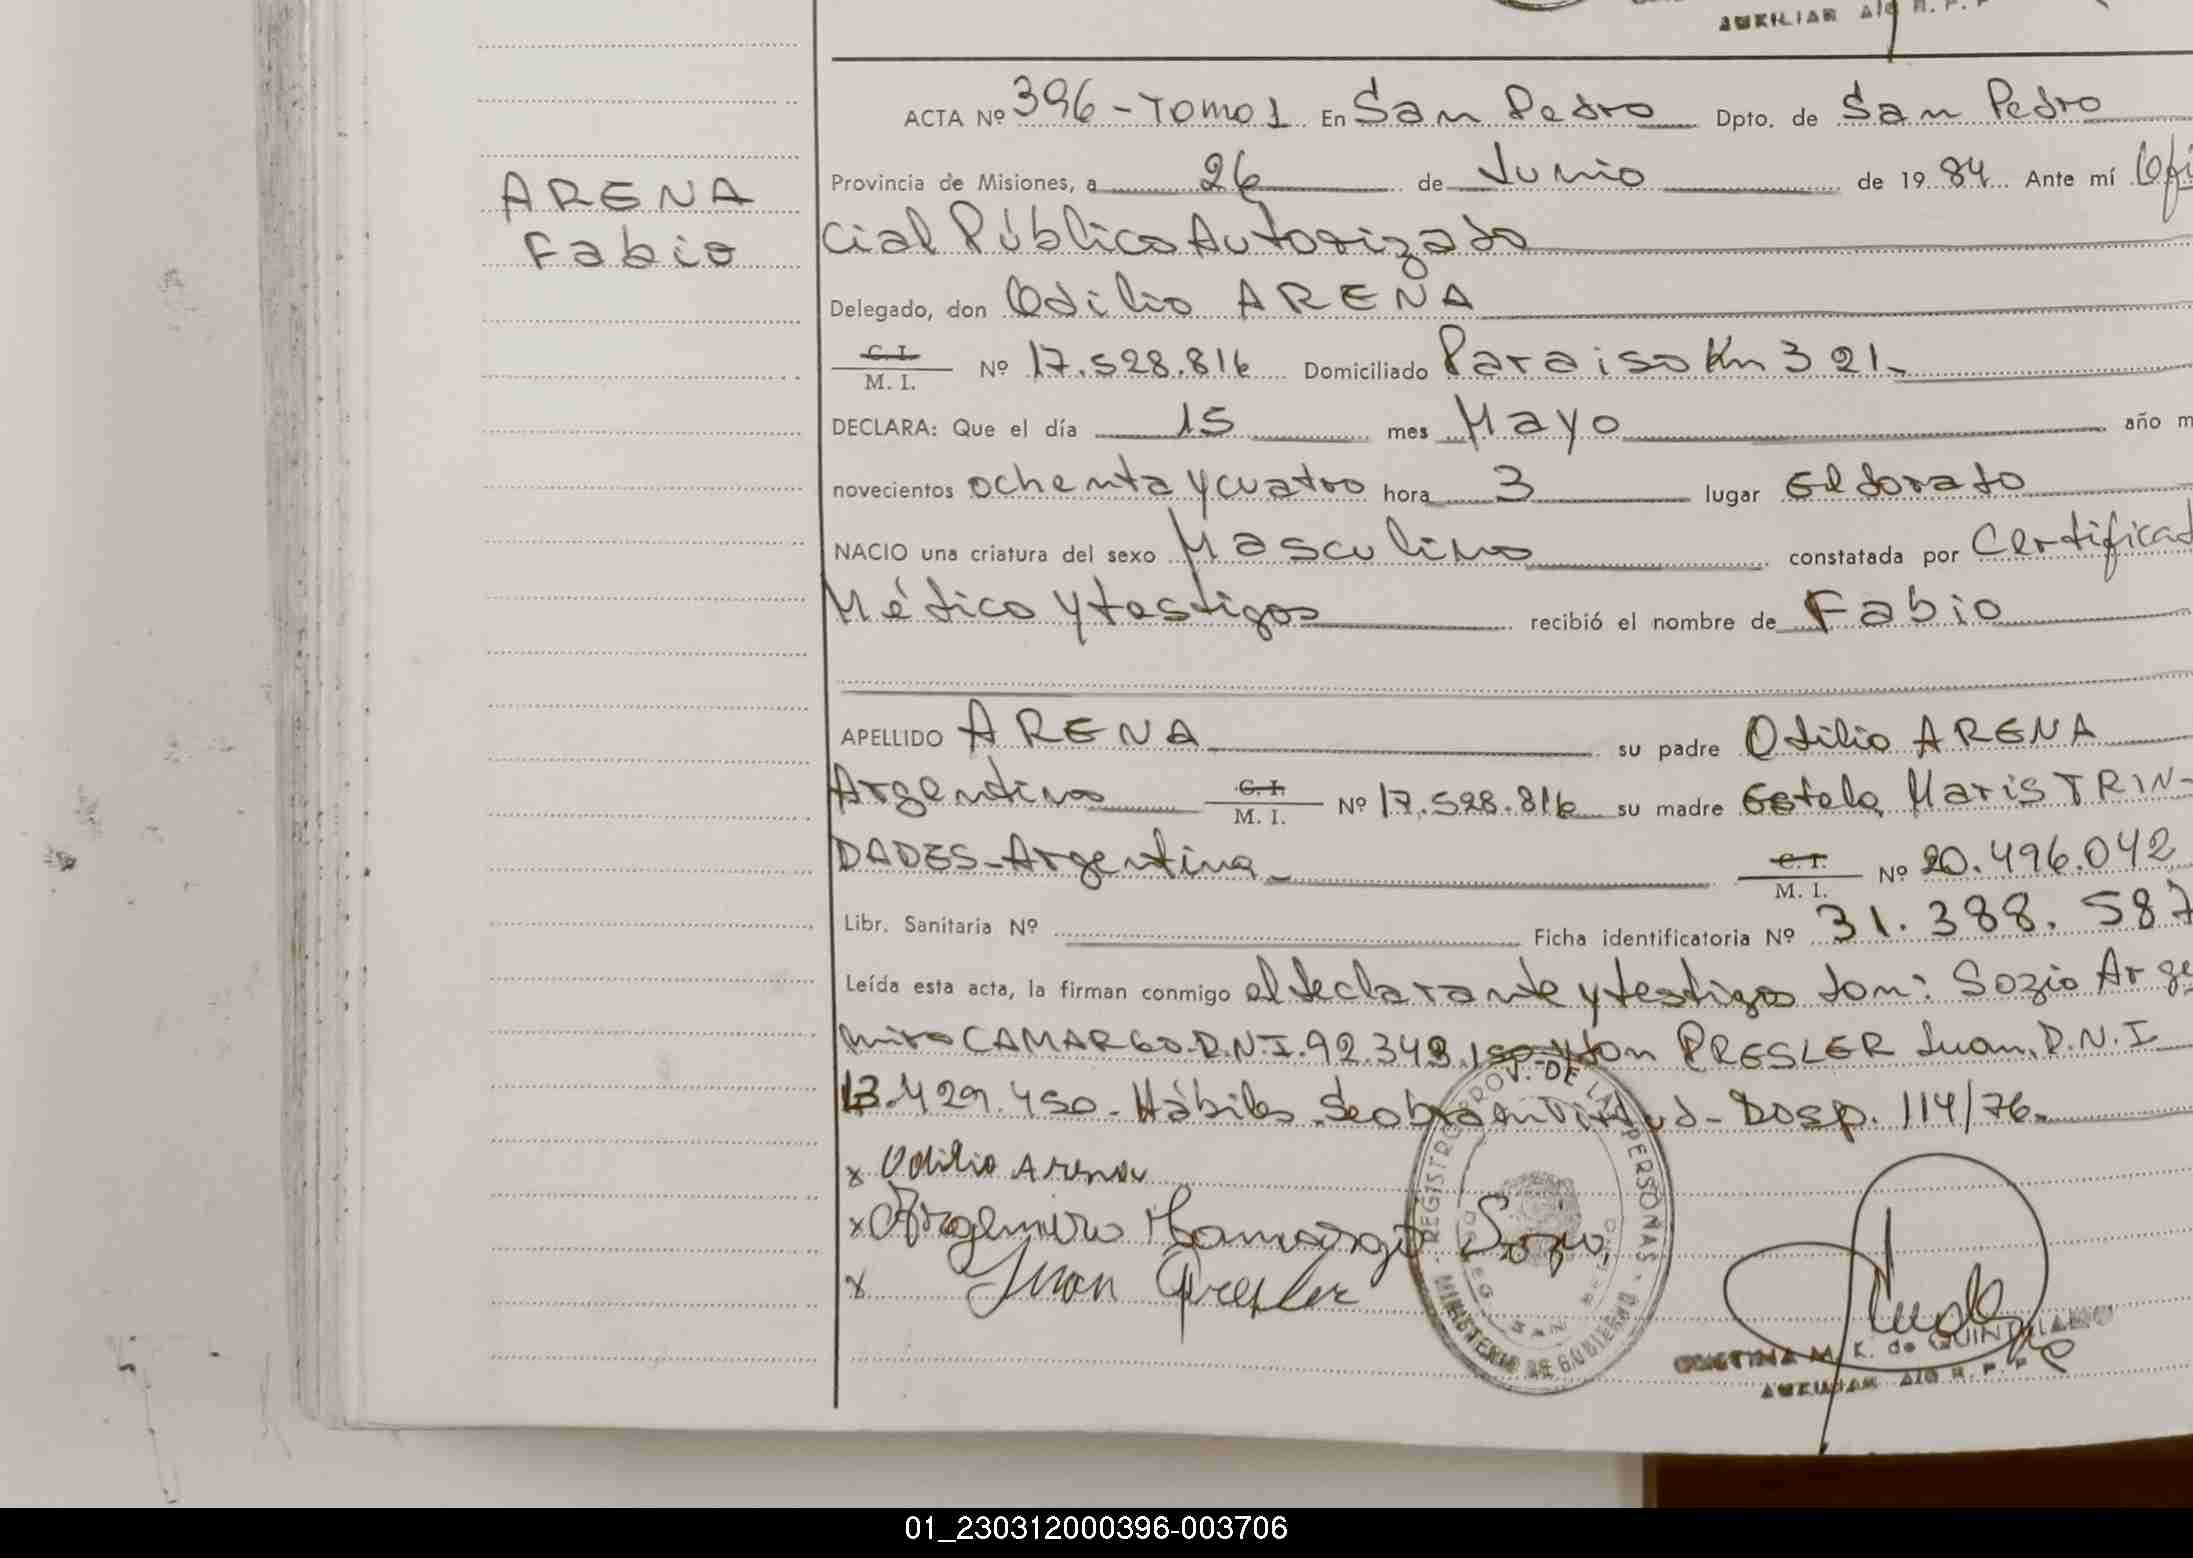 AUXILIAR A/C R. P. P
ACTA Nº 396 - Tomo 1 En San Pedro Dpto. de San Pedro
ARENA
Fabio
Provincia de Misiones, a 26 de Junio de 19 84 Ante mí Ofi
cial Público Autorizado
Delegado, don Odilio ARENA
C. I.
M. I. Nº 17.528.816 Domiciliado Paraiso Km 321.-
DECLARA: Que el día 15 mes Mayo año m
novecientos ochenta y cuatro hora 3 lugar Eldorado
NACIO una criatura del sexo Masculino constatada por Certificad
Médico y testigos recibió el nombre de Fabio
APELLIDO ARENA su padre Odilio ARENA
Argentino C. I. M. I. Nº 17.528.816 su madre Estela Maris TRIN-
DADES - Argentina - C. I. M. I. Nº 20.496.042
Libr. Sanitaria Nº Ficha identificatoria Nº 31.388.587
Leída esta acta, la firman conmigo el declarante y testigos don: Sozio Arge
miro CAMARGO. D.N.I. 92.343.150 y don PRESLER Juan. D.N.I
13.429.450 - Hábiles. Se obra en virtud - Dosp. 114/76.-
x Odilio Arena
x Argemiro Camargo Sozio
x Juan Presler
REGISTRO PROV. DE LAS PERSONAS
MINISTERIO DE GOBIERNO
CRISTINA M. K. de QUINTILIANO
AUXILIAR A/C R. P. P
01_230312000396-003706